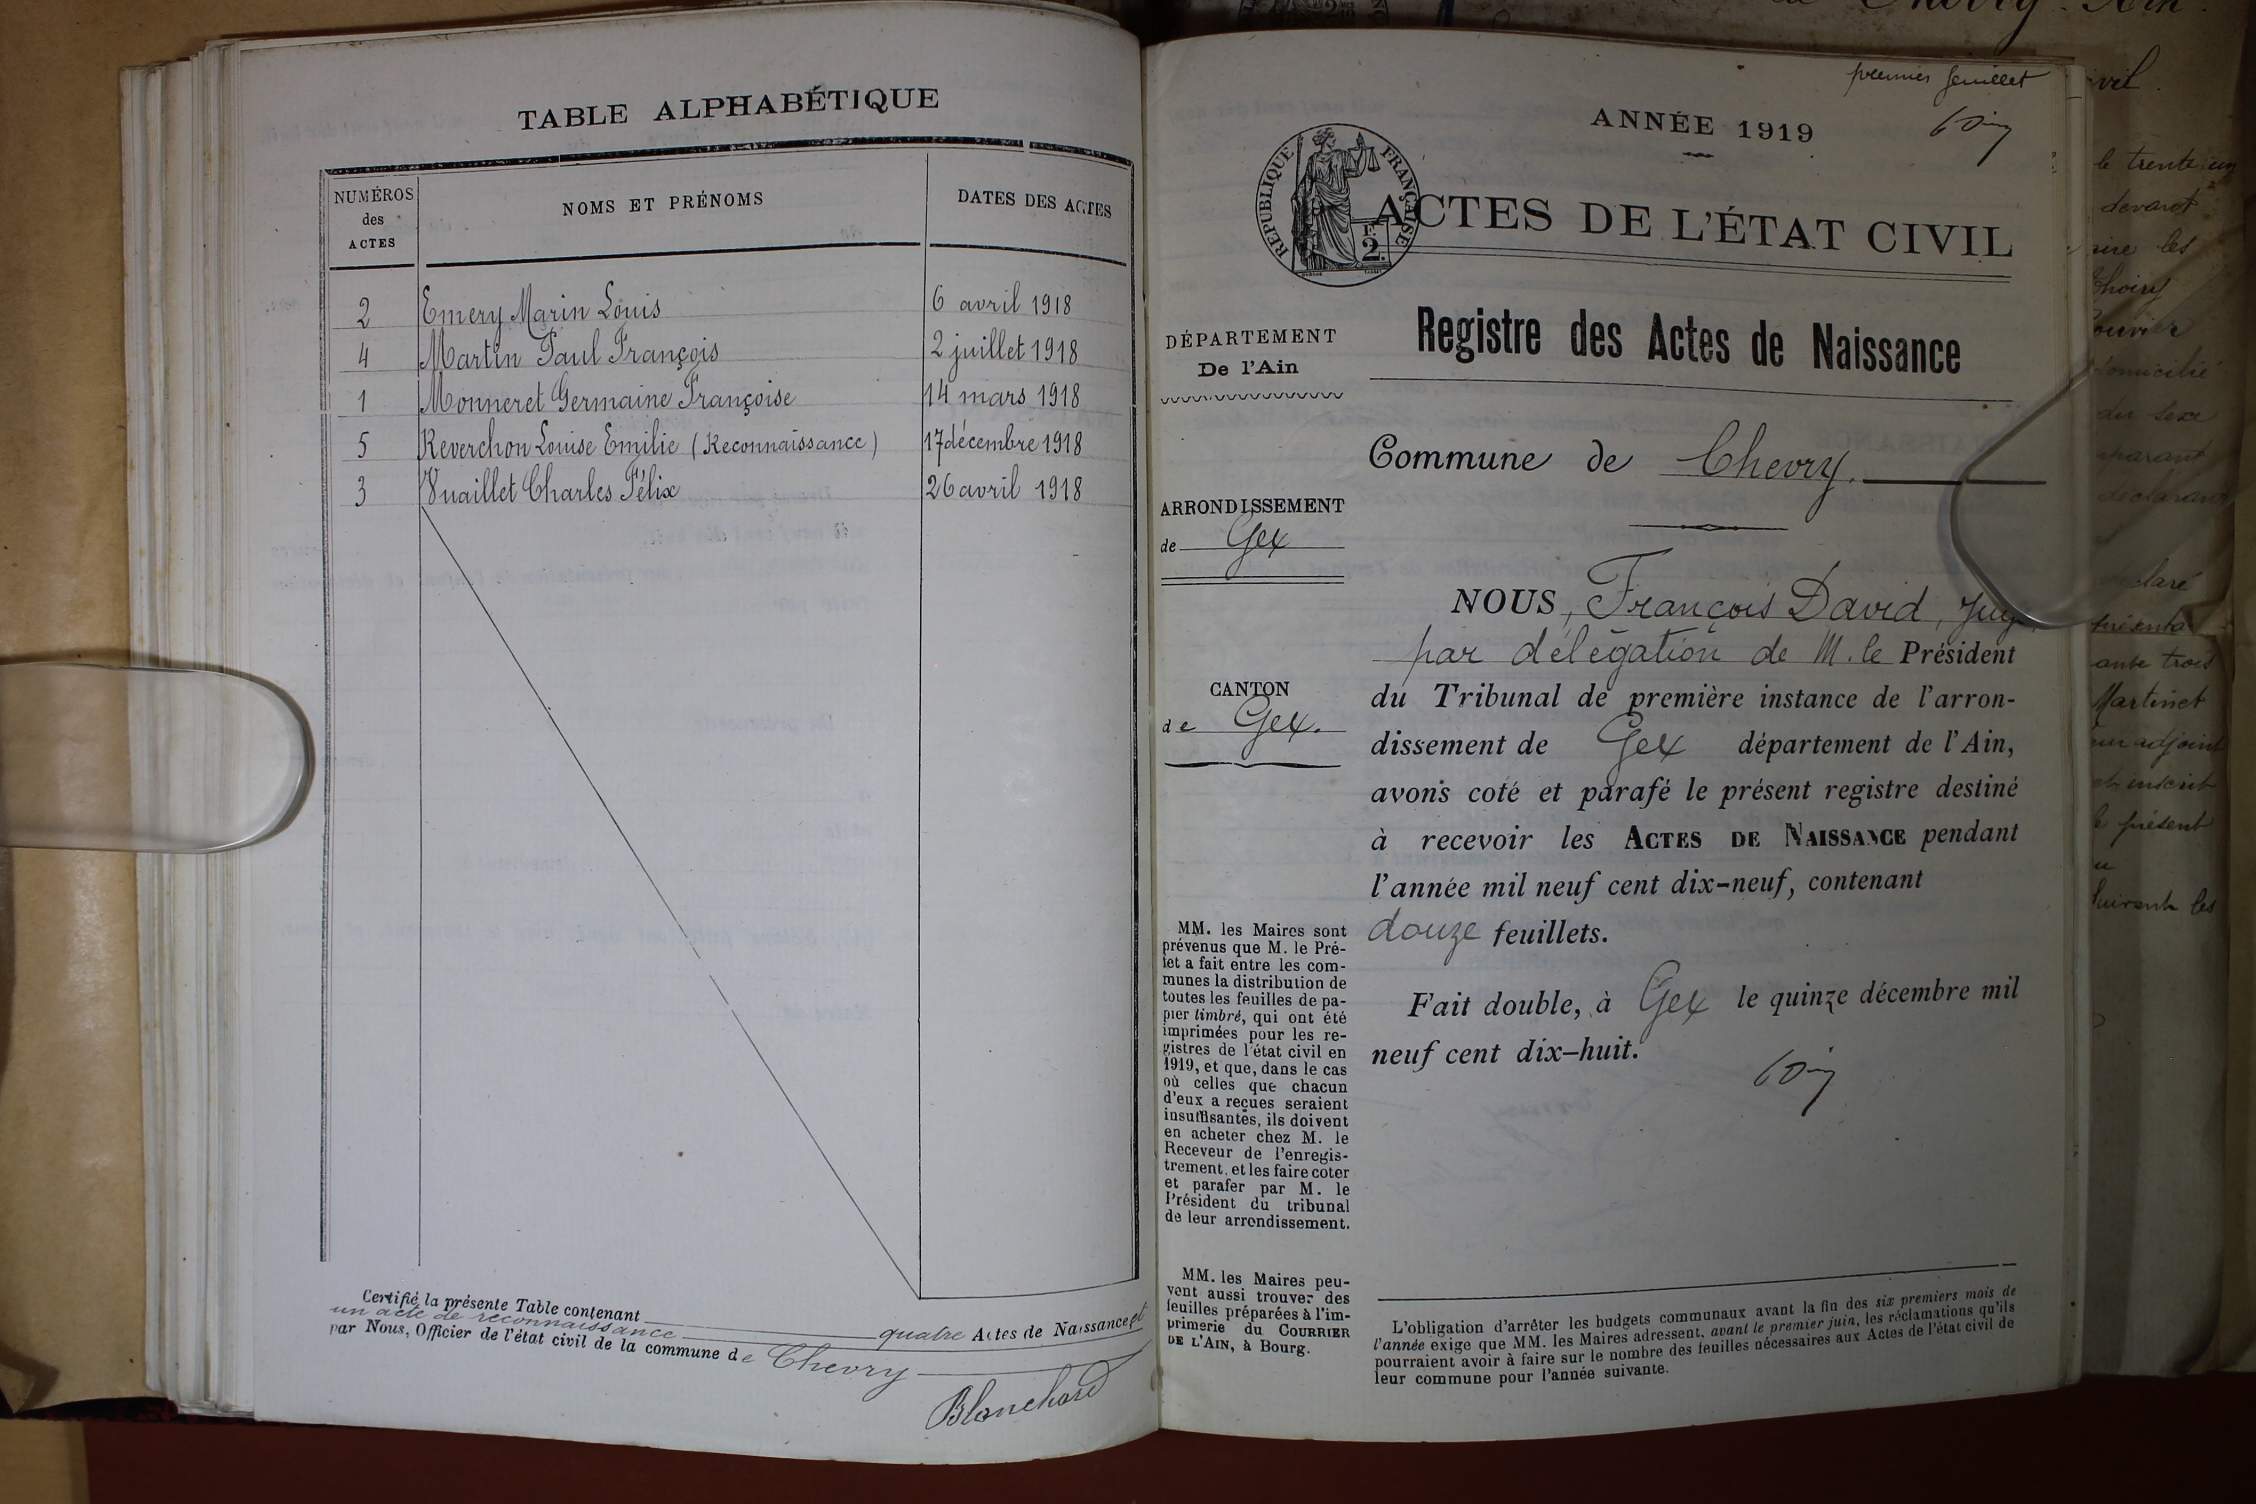 TABLE ALPHABÉTIQUE
NUMÉROS des ACTES
NOMS ET PRÉNOMS
DATES DES ACTES
2 Emery Marin Louis 6 avril 1918
4 Martin Paul François 2 juillet 1918
1 Monneret Germaine Françoise 14 mars 1918
5 Reverchon Louise Emilie (Reconnaissance) 17 décembre 1918
3 Vuaillet Charles Félix 26 avril 1918
Certifié la présente Table contenant quatre Actes de Naissance et
un acte de reconnaissance
par Nous, Officier de l'état civil de la commune de Chevry
Blanchard
premier feuillet
ANNÉE 1919
REPUBLIQUE FRANÇAISE
2.
ACTES DE L'ÉTAT CIVIL
Registre des Actes de Naissance
DÉPARTEMENT
De l'Ain
ARRONDISSEMENT
de Gex
CANTON
de Gex.
MM. les Maires sont
prévenus que M. le Pré-
fet a fait entre les com-
munes la distribution de
toutes les feuilles de pa-
pier timbré, qui ont été
imprimées pour les re-
gistres de l'état civil en
1919, et que, dans le cas
où celles que chacun
d'eux a reçues seraient
insuffisantes, ils doivent
en acheter chez M. le
Receveur de l'enregis-
trement, et les faire coter
et parafer par M. le
Président du tribunal
de leur arrondissement.
MM. les Maires peu-
vent aussi trouver des
feuilles préparées à l'im-
primerie du COURRIER
DE L'AIN, à Bourg.
Commune de Chevry.
NOUS, François David, juge
par délégation de M. le Président
du Tribunal de première instance de l'arron-
dissement de Gex département de l'Ain,
avons coté et parafé le présent registre destiné
à recevoir les ACTES DE NAISSANCE pendant
l'année mil neuf cent dix-neuf, contenant
douze feuillets.
Fait double, à Gex le quinze décembre mil
neuf cent dix-huit.
L'obligation d'arrêter les budgets communaux avant la fin des six premiers mois de
l'année exige que MM. les Maires adressent, avant le premier juin, les réclamations qu'ils
pourraient avoir à faire sur le nombre des feuilles nécessaires aux Actes de l'état civil de
leur commune pour l'année suivante.
le trente un
devant
les
domicilié
du sexe
trois
Martinet
adjoint
inscrit
présent
suivent les